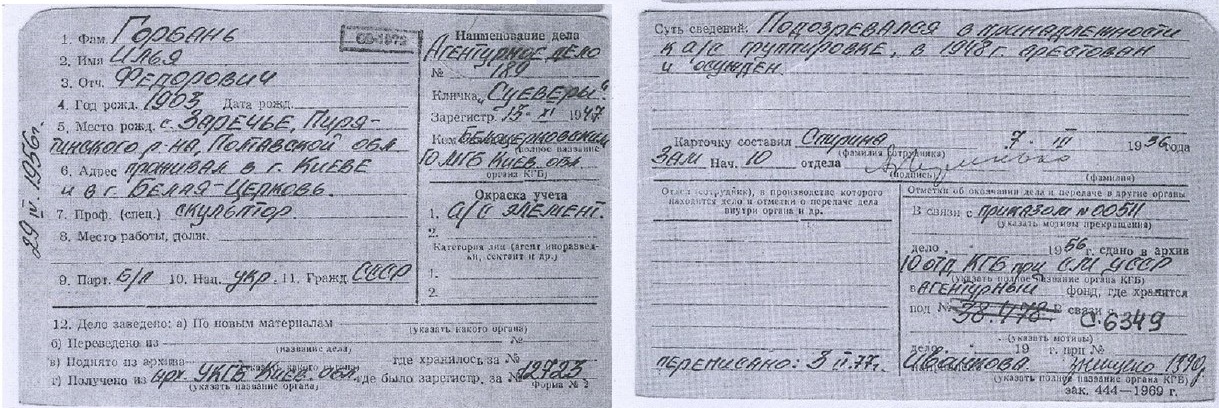 1. Фам. Горбань
2. Имя Илья
3. Отч. Федорович
4. Год рожд. 1903 Дата рожд.
5. Место рожд. с. Заречье, Пиря-
тинского р-на, Полтавской обл
6. Адрес проживал в г. Киеве
и в г. Белая-Церковь.
7. Проф. (спец.) скульптор.
8. Место работы, долж.
9. Парт. б/п 10. Нац. укр. 11. Гражд. СССР
29 IV. 1956г.
Наименование дела
Агентурное дело
№ 189
Кличка „Суеверы"
Зарегистр. 13-XI 1947
Кем Белоцерковским
(полное название
ГО МГБ Киев. обл.
органа КГБ)
Окраска учета
1. а/с элемент.
2.
Категория лиц (агент иноразвед-
ки, сектант и др.)
1.
2.
12. Дело заведено: а) По новым материалам
(указать какого органа)
б) Переведено из
(название дела)
в) Поднято из архива где хранилось за №
г) Получено из арх. УКГБ Киев. обл. где было зарегистр. за № 12723
(указать название органа) Форма № 3
Суть сведений: Подозревался в принадлежности
к а/с группировке, в 1948 г. арестован
и осужден.
Карточку составил Спирина 7 III 1956 года
(фамилия сотрудника)
Зам Нач. 10 отдела
(подпись) (фамилия)
Отдел (сотрудник), в производстве которого
находится дело и отметки о передаче дела
внутри органа и др.
Отметки об окончании дела и передаче в другие органы
В связи с приказом №00511
(указать мотивы прекращения)
дело 1956 г. сдано в архив
10 отд. КГБ при СМ УССР
(указать полное название органа КГБ)
в агентурный фонд, где хранится
под № 38.478. В связи с С.6349
(указать мотивы)
дело 19 г. при №
переписано: 3 II.77г. 1990г
(указать полное название органа КГБ)
зак. 444—1969 г.